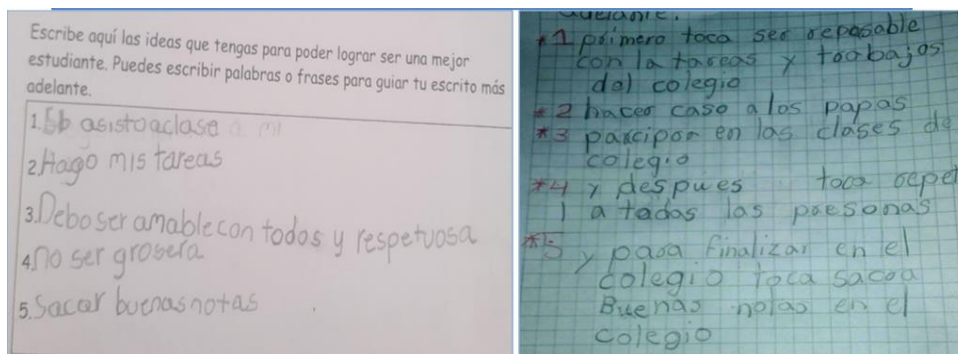 Escribe aquí las ideas que tengas para poder lograr ser una mejor
estudiante. Puedes escribir palabras o frases para guiar tu escrito más
adelante.
1. asistoaclase a mi
2. Hago mis tareas
3. Debo ser amable con todos y respetuosa
4. no ser grosera
5. Sacar buenas notas
adelante.
*1 primero toca ser reposable
con la tareas y toobajos
del colegio
*2 hacer caso a los papas
*3 parcipar en las clases de
colegio
*4 y despues toca repet
l a todas las poesonas
*5 y para finalizar en el
colegio toca sacoa
Buenas notas en el
colegio